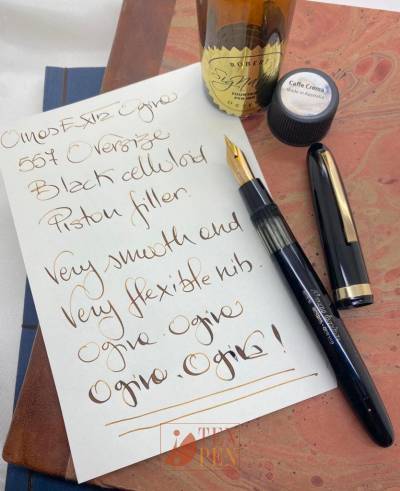 Omas Extra Ogiva
557 Oversize
Black celluloid
Piston filler.
Very smooth and
Very flexible nib.
Ogiva. Ogiva
Ogiva. Ogiva!
ROBERT
Signature
Caffe Crema
Made in Australia
TEN
PEN